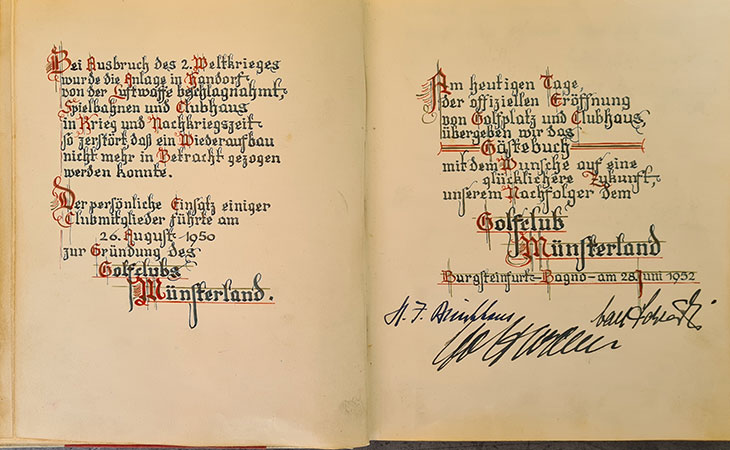 Bei Ausbruch des 2. Weltkrieges
wurde die Anlage in Handorf
von der Luftwaffe beschlagnahmt,
Spielbahnen und Clubhaus
in Krieg und Nachkriegszeit
so zerstört daß ein Wiederaufbau
nicht mehr in Betracht gezogen
werden konnte.
Der persönliche Einsatz einiger
Clubmitglieder führte am
26. August 1950
zur Gründung des
Golfclubs
Münsterland.
Am heutigen Tage,
der offiziellen Eröffnung
von Golfplatz und Clubhaus
übergeben wir das
Gästebuch
mit dem Wunsche auf eine
glücklichere Zukunft,
unserem Nachfolger dem
Golfclub
Münsterland
Burgsteinfurt-Bagno-am 28 Juni 1952